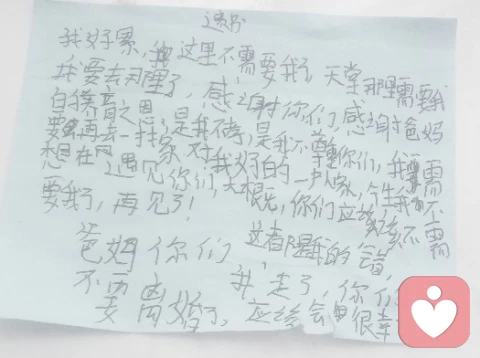 遗书
我好累,这里不需要我了,天堂那里需要我
我要去那里了,感谢你们,感谢爸妈
的养育之恩,是我不孝,是我不尊重你们,我需
要再去找一家对我好的一户人家,今生我不
想在遇见你们,大概,你们应该不需
要我了,再见了!
这都是我的错
爸妈你们
不要离婚了,我走了,你们
应该会很幸